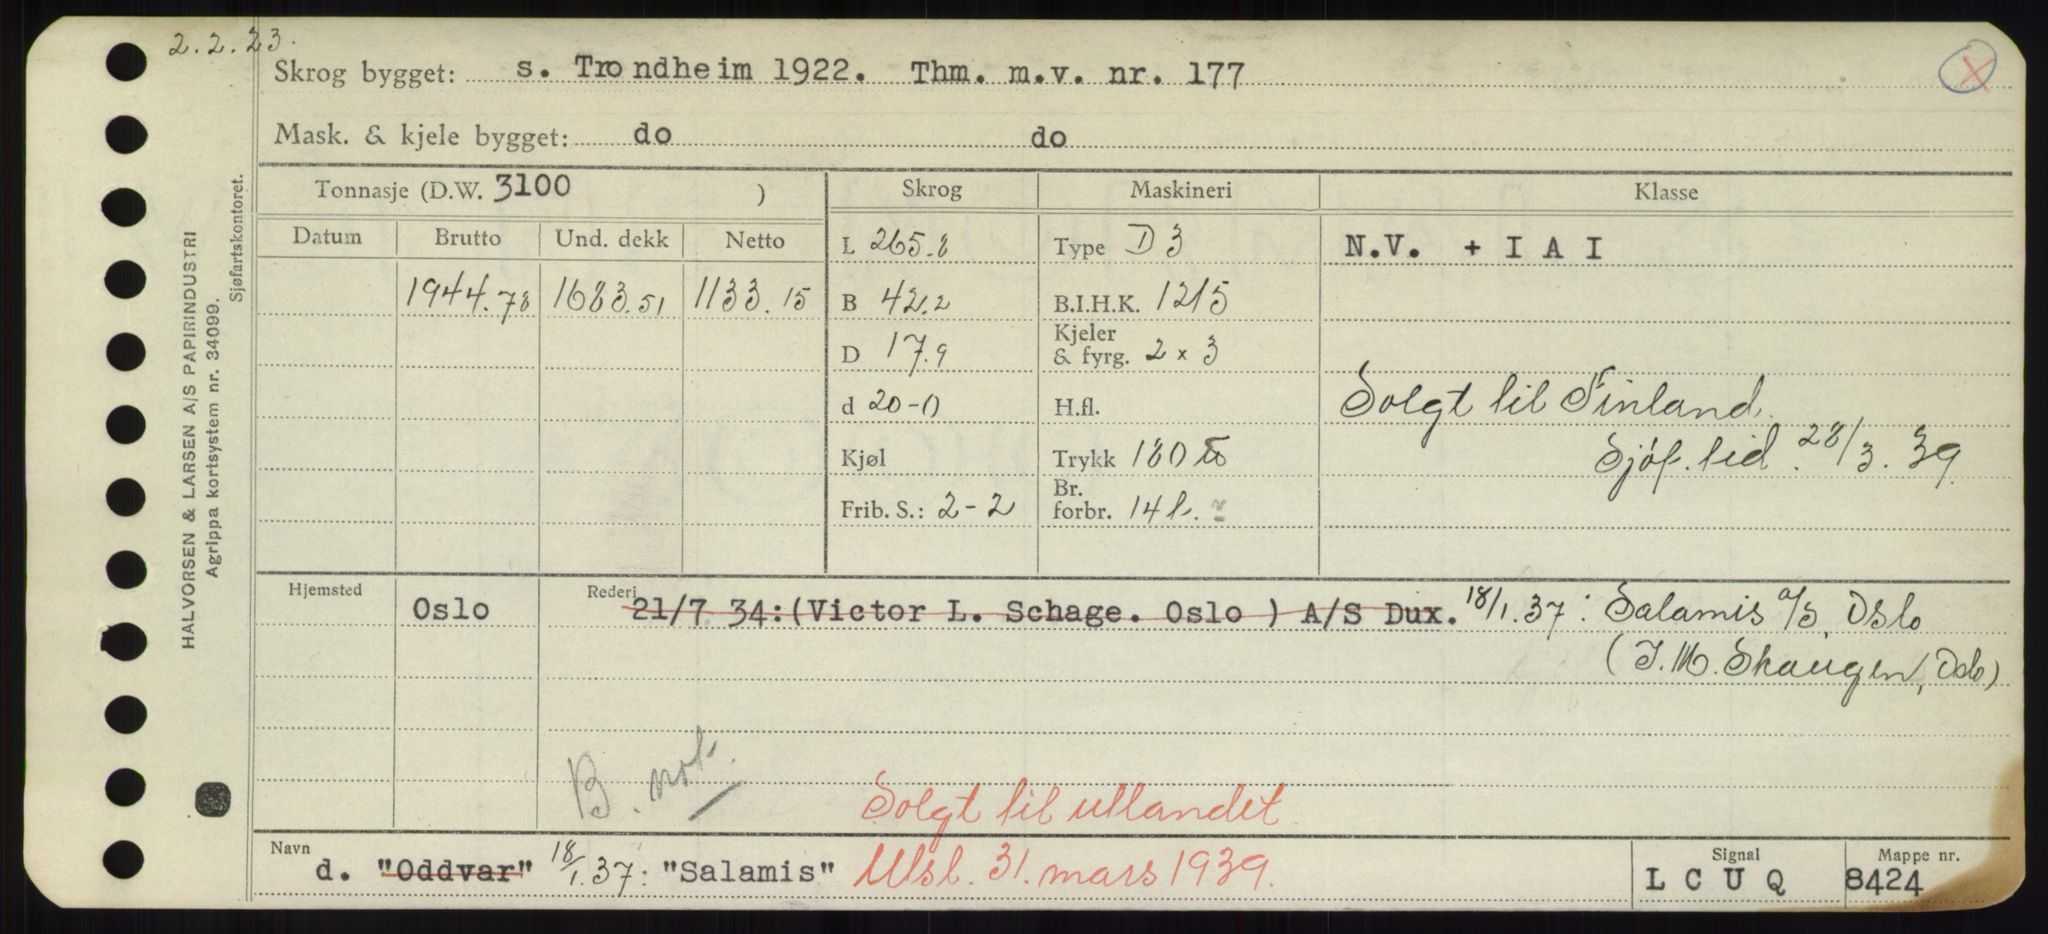 2.2.23.
Skrog bygget: s. Trondheim 1922. Thm. m.v. nr. 177
Mask. & kjele bygget: do do
HALVORSEN & LARSEN A/S PAPIRINDUSTRI
Agrippa kortsystem nr. 34099.
Sjøfartskontoret.
Tonnasje (D.W. 3100 ) Skrog Maskineri Klasse
Datum Brutto Und. dekk Netto
L 265.8 Type D 3 N.V. + I A I
1944.78 1683.51 1133.15 B 42.2 B.I.H.K. 1215
D 17.9 Kjeler & fyrg. 2 x 3
d 20-0 H.fl. Solgt til Finland.
Kjøl Trykk 180 tb Sjøf. tid. 28/3.39
Frib. S.: 2-2 Br. forbr. 14 t.
Hjemsted Oslo Rederi 21/7 34:(Victor L. Schage. Oslo ) A/S Dux. 18/1.37: Salamis a/s, Oslo
(I.M. Skaugen, Oslo)
B. not.
Solgt til utlandet.
Navn d. "Oddvar" 18/1.37: "Salamis" Utsl. 31. mars 1939. Signal L C U Q Mappe nr. 8424